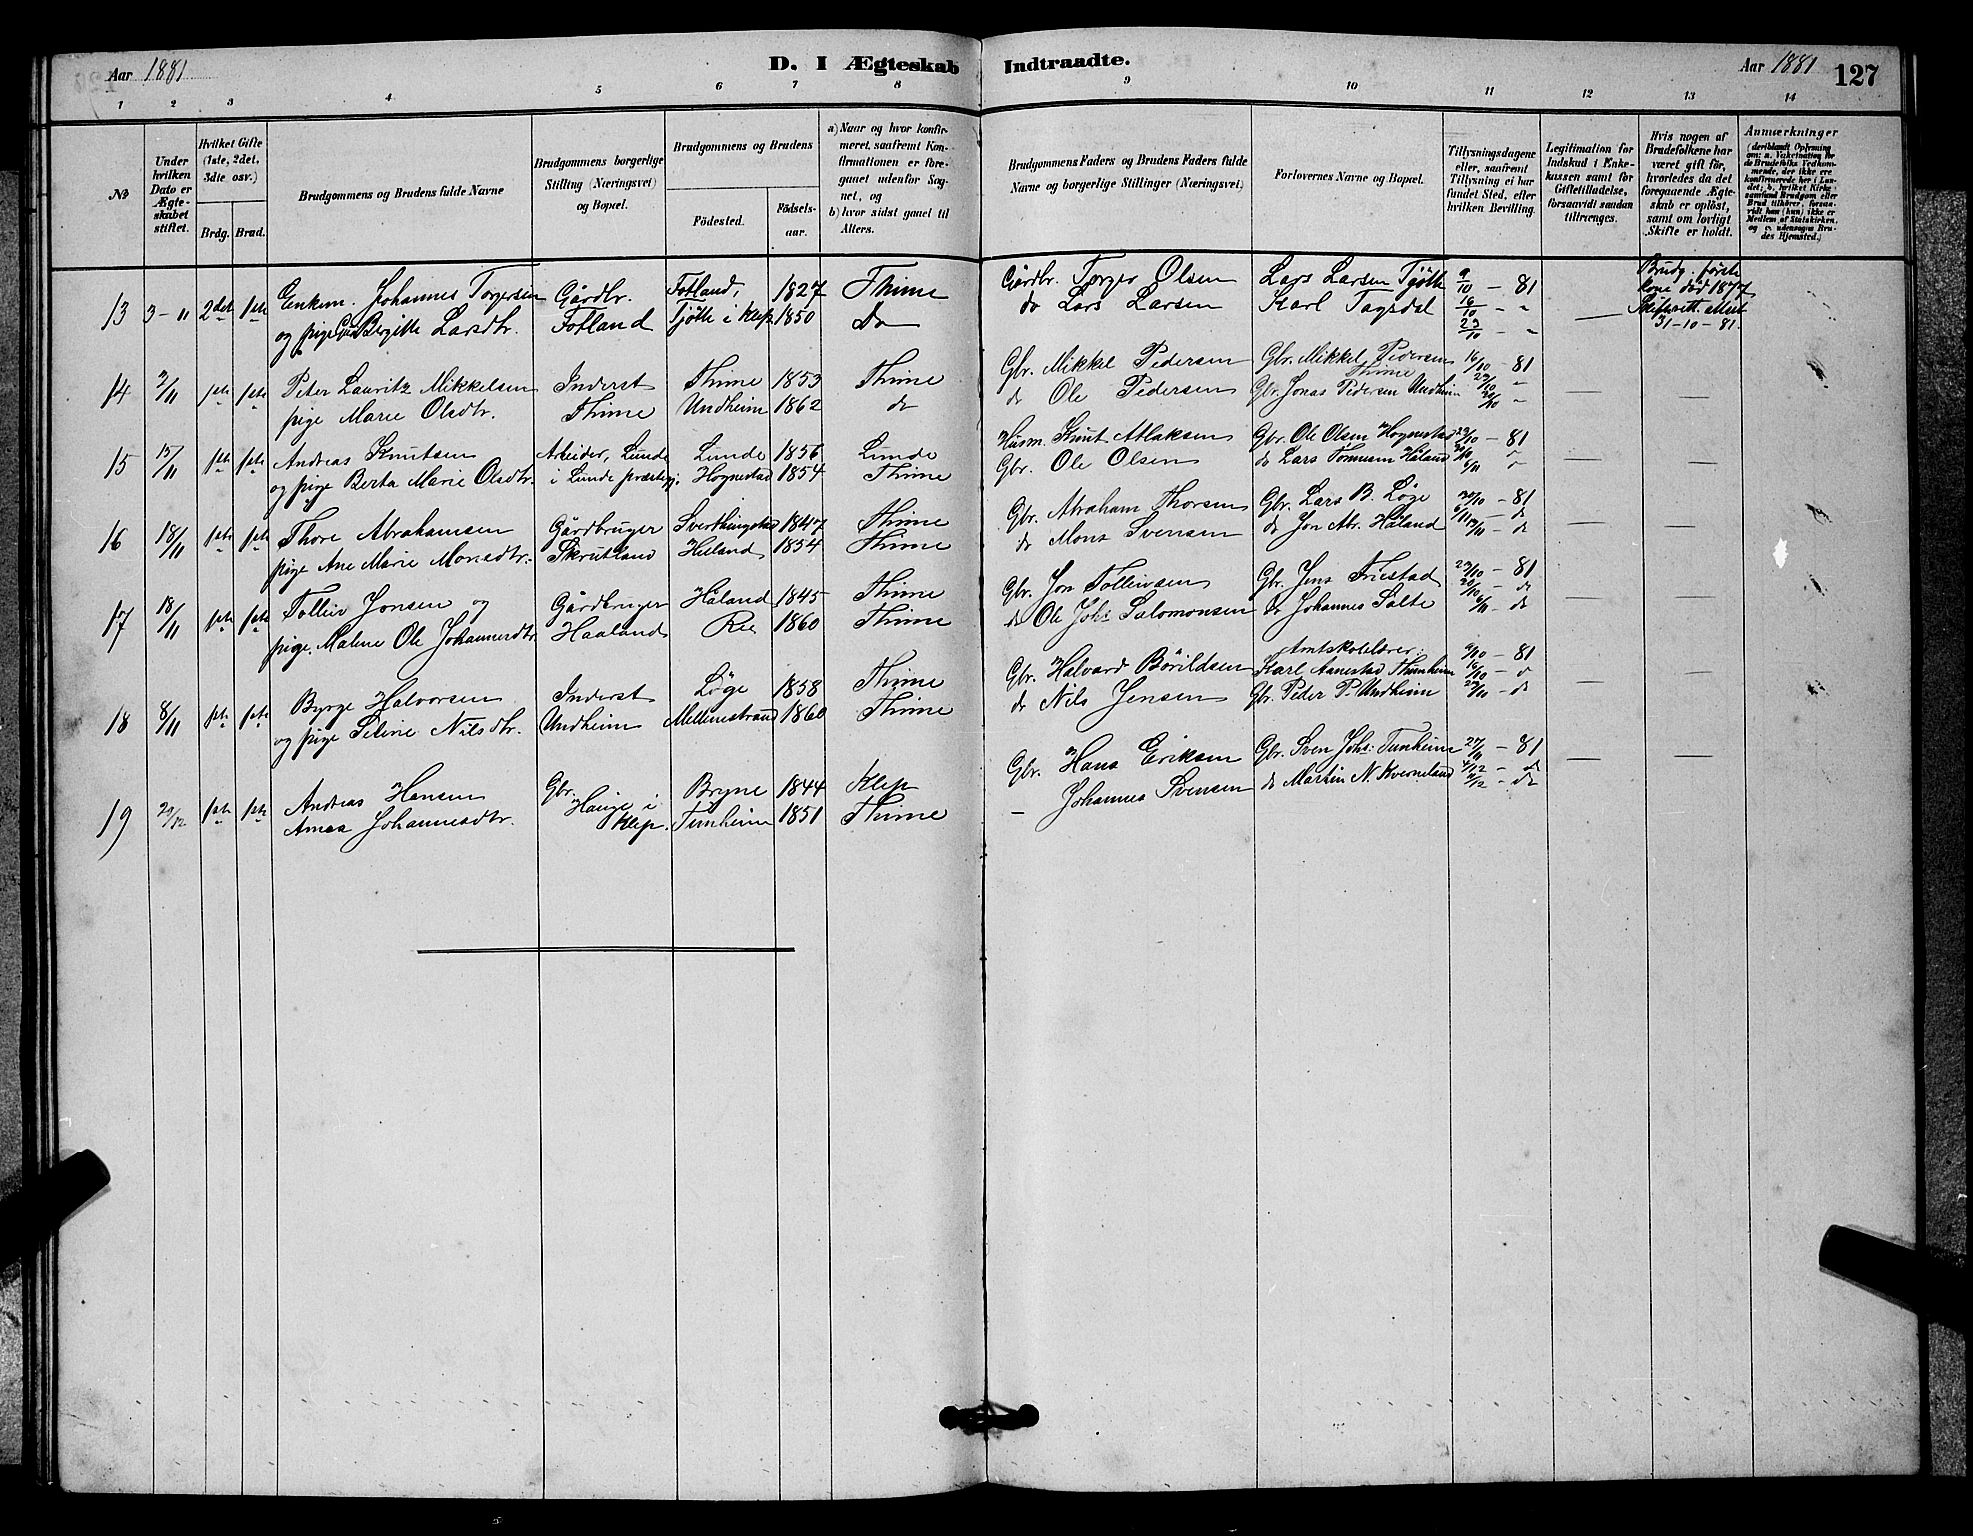 Aar 1881
D. I Ægteskab Indtraadte.
Aar 1881
127
1 2 3 4 5 6 7 8 9 10 11 12 13 14
No
Under hvilken Dato er Ægteskabet stiftet.
Hvilket Gifte (1ste, 2det, 3die osv.)
Brdg. Brud.
Brudgommens og Brudens fulde Navne
Brudgommens borgerlige Stilling (Næringsvei) og Bopæl.
Brudgommens og Brudens
Födested.
Födselsaar.
a) Naar og hvor konfirmeret, saafremt Konfirmationen er foregaaet udenfor Sognet, og
b) hvor sidst gaaet til Alters.
Brudgommens Faders og Brudens Faders fulde Navne og borgerlige Stillinger (Næringsvei)
Forlovernes Navne og Bopæl.
Tillysningsdagene eller, saafremt Tillysning ei har fundet Sted, efter hvilken Bevilling.
Legitimation for Indskud i Enkekassen samt for Giftetilladelse, forsaavidt saadan tiltrænges.
Hvis nogen af Brudefolkene har været gift för, hvorledes da det foregaaende Ægteskab er oplöst, samt om lovligt Skifte er holdt.
Anmærkninger (deriblandt Oplysning om: a. Vakcination for de Brudefolks Vedkommende, der ikke ere konfirmerede her i Landet; b. hvilket Kirkesamfund Brudgom eller Brud tilhörer, forsaavidt han (hun) ikke er Medlem af Statskirken, og c. udensogns Brudes Hjemsted.)
13 3-11 2det 1ste Enkem. Johannes Torgersen Gårdbr. Fotland, 1827 Thime Gårdbr. Torger Olsen Lars Larsen Tjøtte 9/10 - 81 Brudg. første
og pige Bergitte Larsdtr. Fotland Tjøtte i Klep 1850 Do do Lars Larsen Karl Tagsdal 16/10 - " — kone død 1877
23/10 - " Skifterett. attest
31-10-81.
14 2/11 1ste 1ste Peter Lauritz Mikkelsen Inderst Thime 1853 Thime Gbr. Mikkel Pedersen Gbr. Mikkel Pedersen Thime 16/10 - 81
pige Marie Olsdtr. Thime Undheim 1862 do do Ole Pedersen Gbr. Jonas Pedersen Undheim 23/10 " 30/10 " — —
15 15/11 1ste 1ste Andreas Knutsen Arbeider, Lunde Lunde 1856 Lunde Husm. Knut Atlaksen Gbr. Ole Olsen Hognestad 23/10 - 81
og pige Berta Marie Olsdtr. i Lunde præstegj. Hognestad 1854 Thime Gbr. Ole Olsen do Lars Tønnesen Håland 30/10 6/11 — —
16 18/11 1ste 1ste Thore Abrahamsen Gårdbruger Sverthingstad 1847 Thime Gbr. Abraham Thorsen Gbr. Lars B. Løge 30/10 - 81
pige Ane Marie Monsdtr. Skrutland Hæland 1854 Thime do Mons Svensen do Jon Abr. Håland 6/11 - do 13/11 - do — —
17 18/11 1ste 1ste Tolleiv Jonsen og Gårdbruger Håland 1845 Thime Gbr. Jon Tolleivsen Gbr. Jens Friestad 23/10 - 81
pige Malene Ole Johannesdtr. Haaland Ree 1860 Thime do Ole Johs Salomonsen do Johannes Salte 30/10 - do 6/11 - do — —
18 8/11 1ste 1ste Byrge Halvorsen Inderst Løge 1858 Thime Gbr. Halvard Børildsen Amtskolelærer: Karl Aanestad Thunheim 9/10 - 81
og pige Seline Nilsdtr. Undheim Mellemstrand 1860 Thime do Nils Jensen Gbr. Peder P. Undheim 16/10 - do 23/10 - do — —
19 29/12 1ste 1ste Andreas Hansen Gbr. Hauge i Bryne 1844 Klep Gbr. Hans Eriksen Gbr. Sven Johs: Tunheim 27/11 - 81
Anna Johannesdtr. Klep. Tunheim 1851 Thime - Johannes Svensen do Martin N. Kverneland 4/12 - do — —